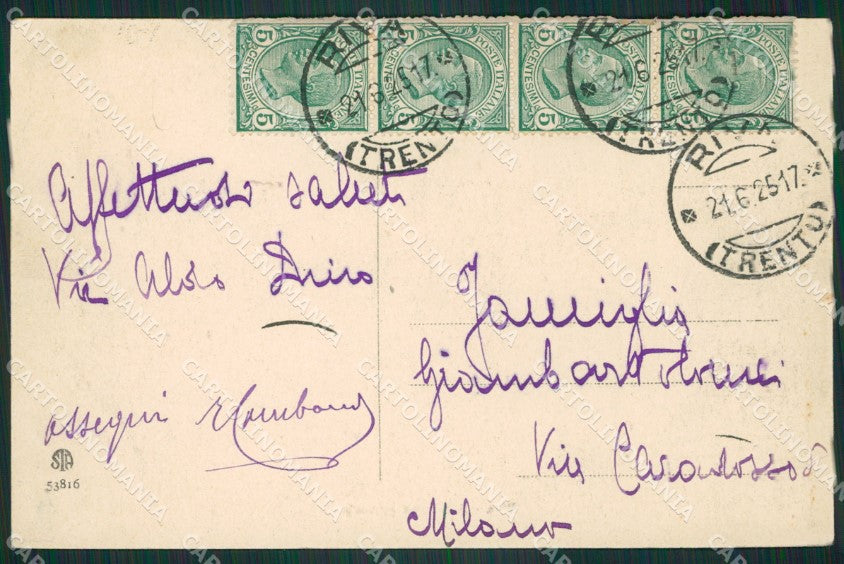 5 CENTESIMI 5 POSTE ITALIANE
5 CENTESIMI 5 POSTE ITALIANE
5 CENTESIMI 5 POSTE ITALIANE
5 CENTESIMI 5 POSTE ITALIANE
RIVA
21.6.25 17.
(TRENTO)
RIVA
21.6.25 17.
(TRENTO)
RIVA
21.6.25 17.
(TRENTO)
Affettuosi saluti
Aldo
Famiglia
Giambartolomei
Via Caradosso
Milano
ossequi
STA
53816
CARTOLINOMANIA